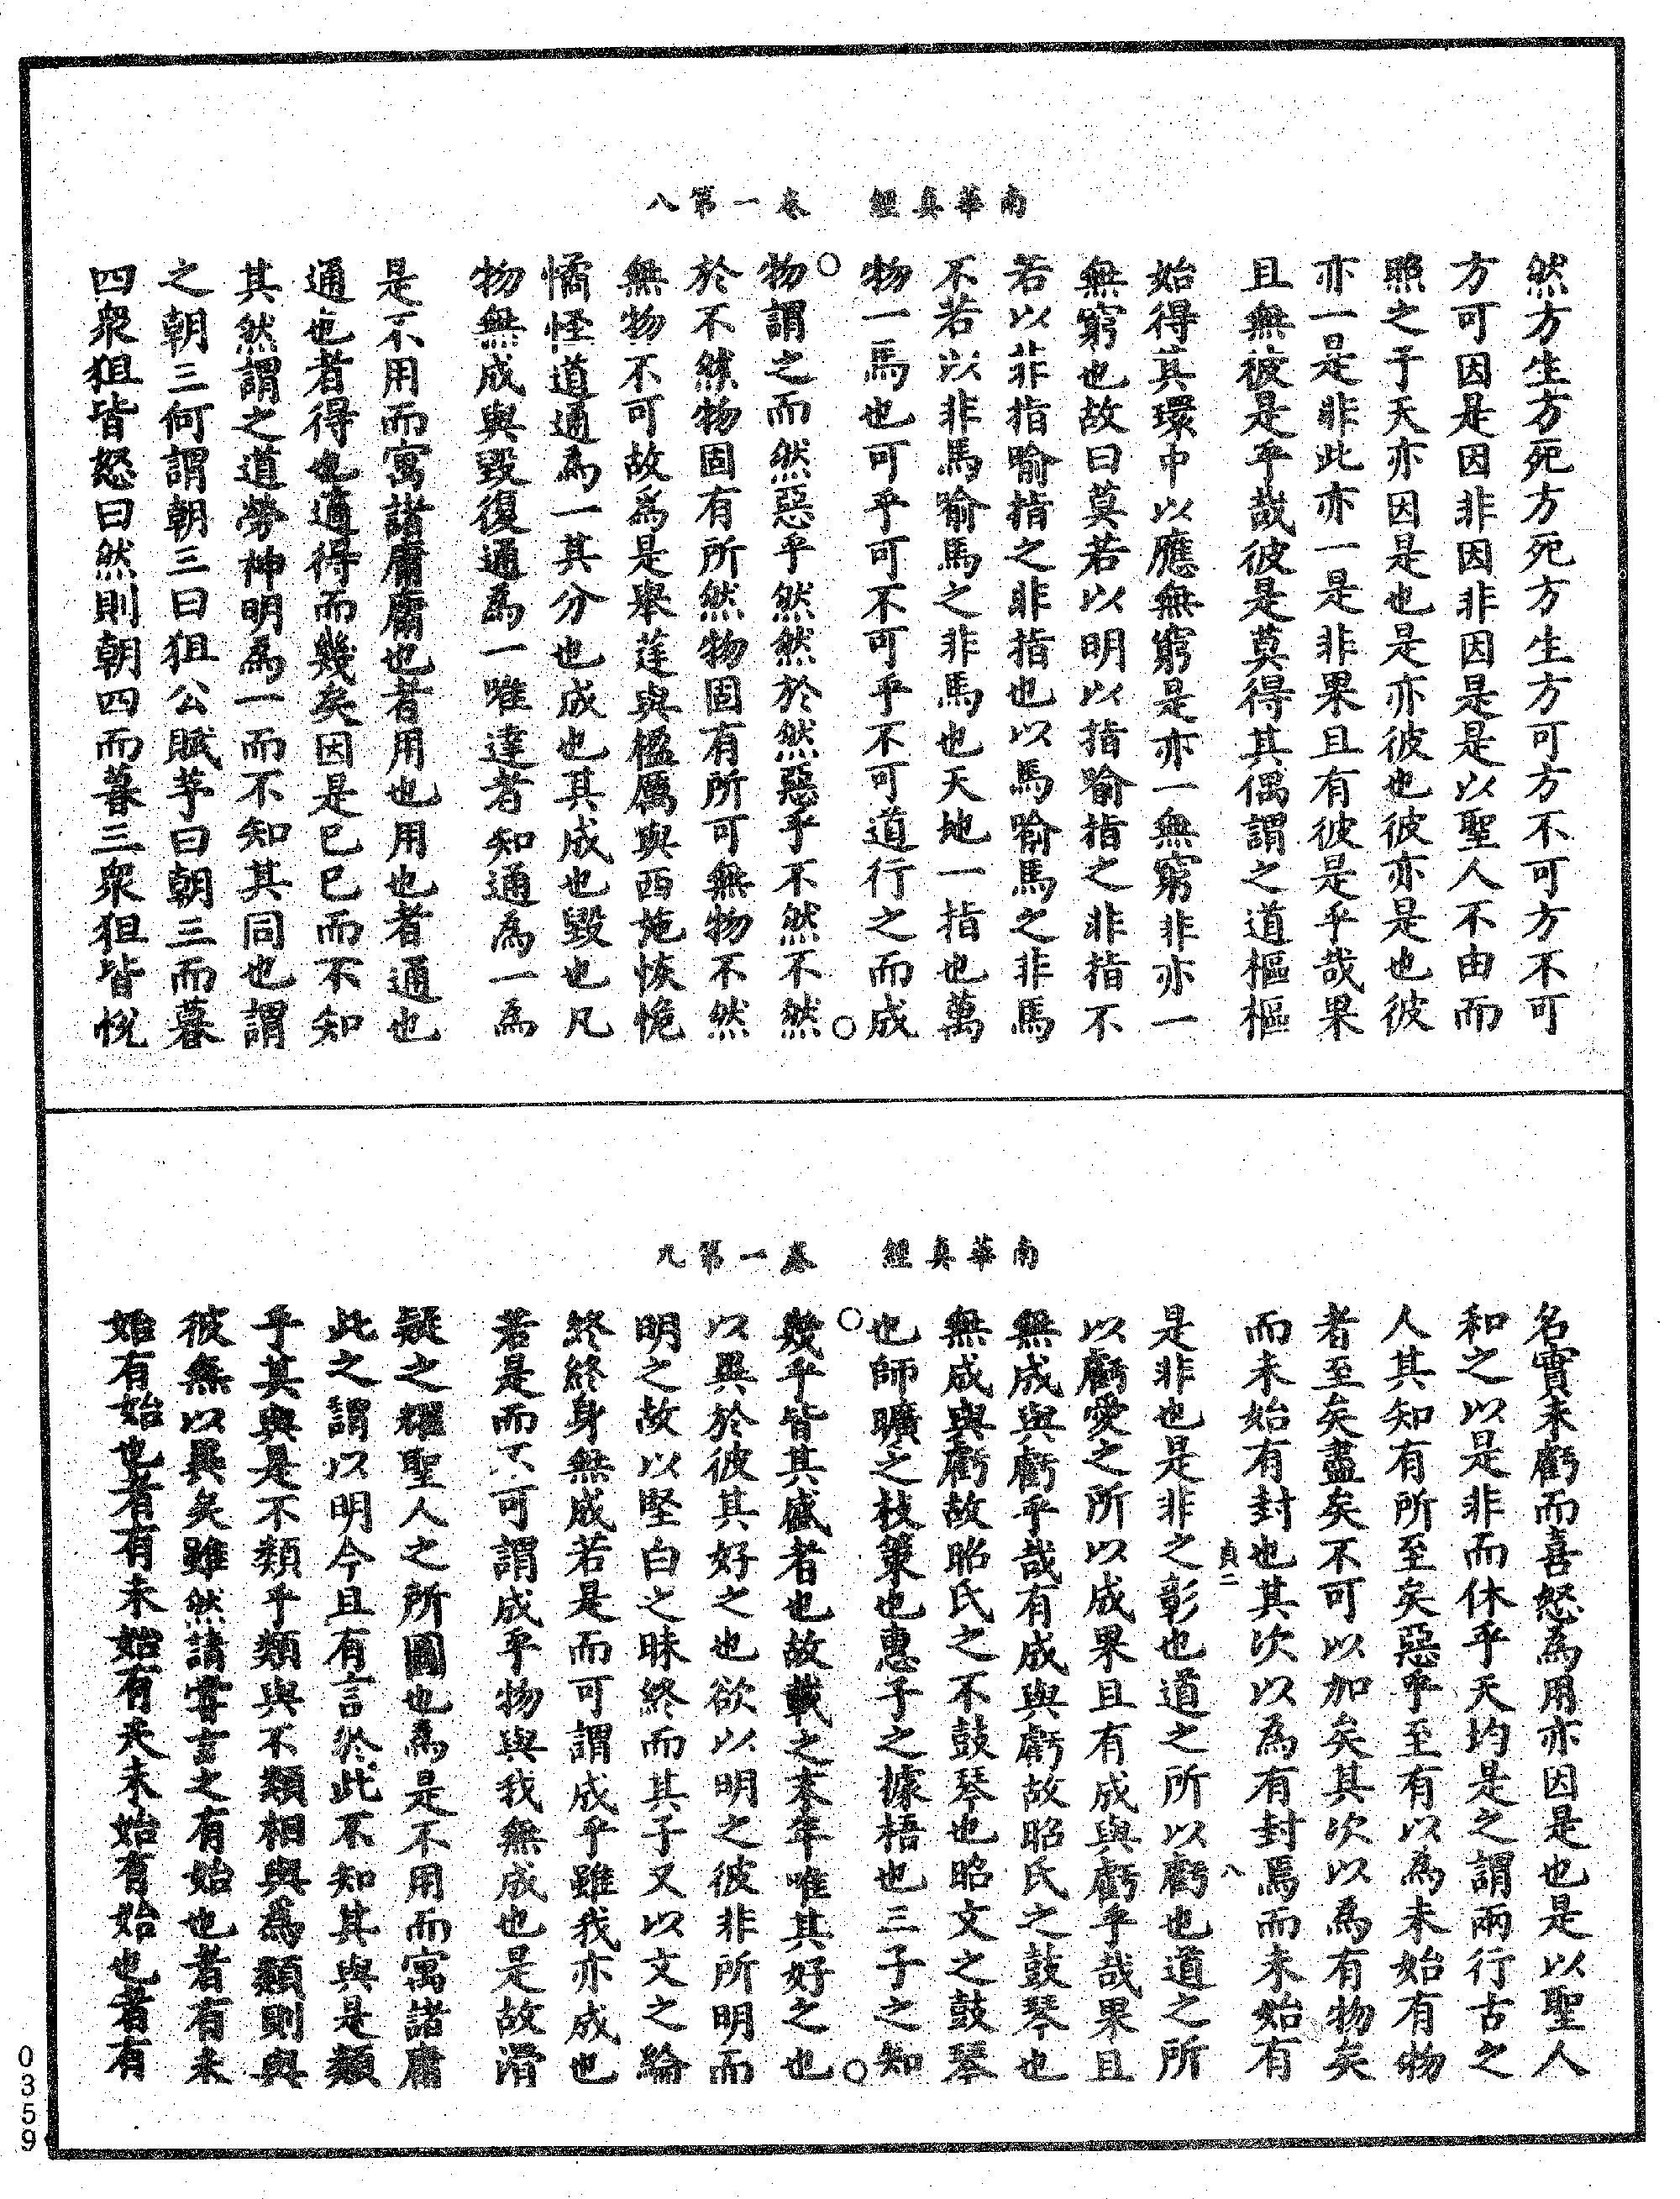 南華真經　卷一第八
然方生方死方死方生方可方不可方不可
方可因是因非因非因是是以聖人不由而
照之于天亦因是也是亦彼也彼亦是也彼
亦一是非此亦一是非果且有彼是乎哉果
且無彼是乎哉彼是莫得其偶謂之道樞樞
始得其環中以應無窮是亦一無窮非亦一
無窮也故曰莫若以明以指喻指之非指不
若以非指喻指之非指也以馬喻馬之非馬
不若以非馬喻馬之非馬也天地一指也萬
物一馬也可乎可不可乎不可道行之而成
物謂之而然惡乎然然於然惡乎不然不然
於不然物固有所然物固有所可無物不然
無物不可故為是舉莛與楹厲與西施恢恑
憰怪道通為一其分也成也其成也毀也凡
物無成與毀復通為一唯達者知通為一為
是不用而寓諸庸庸也者用也用也者通也
通也者得也適得而幾矣因是已已而不知
其然謂之道勞神明為一而不知其同也謂
之朝三何謂朝三曰狙公賦芧曰朝三而暮
四衆狙皆怒曰然則朝四而暮三衆狙皆悅
南華真經　卷一第九
名實未虧而喜怒為用亦因是也是以聖人
和之以是非而休乎天均是之謂兩行古之
人其知有所至矣惡乎至有以為未始有物
者至矣盡矣不可以加矣其次以為有物矣
而未始有封也其次以為有封焉而未始有
貞二　八
是非也是非之彰也道之所以虧也道之所
以虧愛之所以成果且有成與虧乎哉果且
無成與虧乎哉有成與虧故昭氏之鼓琴也
無成與虧故昭氏之不鼓琴也昭文之鼓琴
也師曠之枝策也惠子之據梧也三子之知
幾乎皆其盛者也故載之末年唯其好之也
以異於彼其好之也欲以明之彼非所明而
明之故以堅白之昧終而其子又以文之綸
終終身無成若是而可謂成乎雖我亦成也
若是而不可謂成乎物與我無成也是故滑
疑之耀聖人之所圖也為是不用而寓諸庸
此之謂以明今且有言於此不知其與是類
乎其與是不類乎類與不類相與為類則與
彼無以異矣雖然請嘗言之有始也者有未
始有始也者有未始有夫未始有始也者有
0359